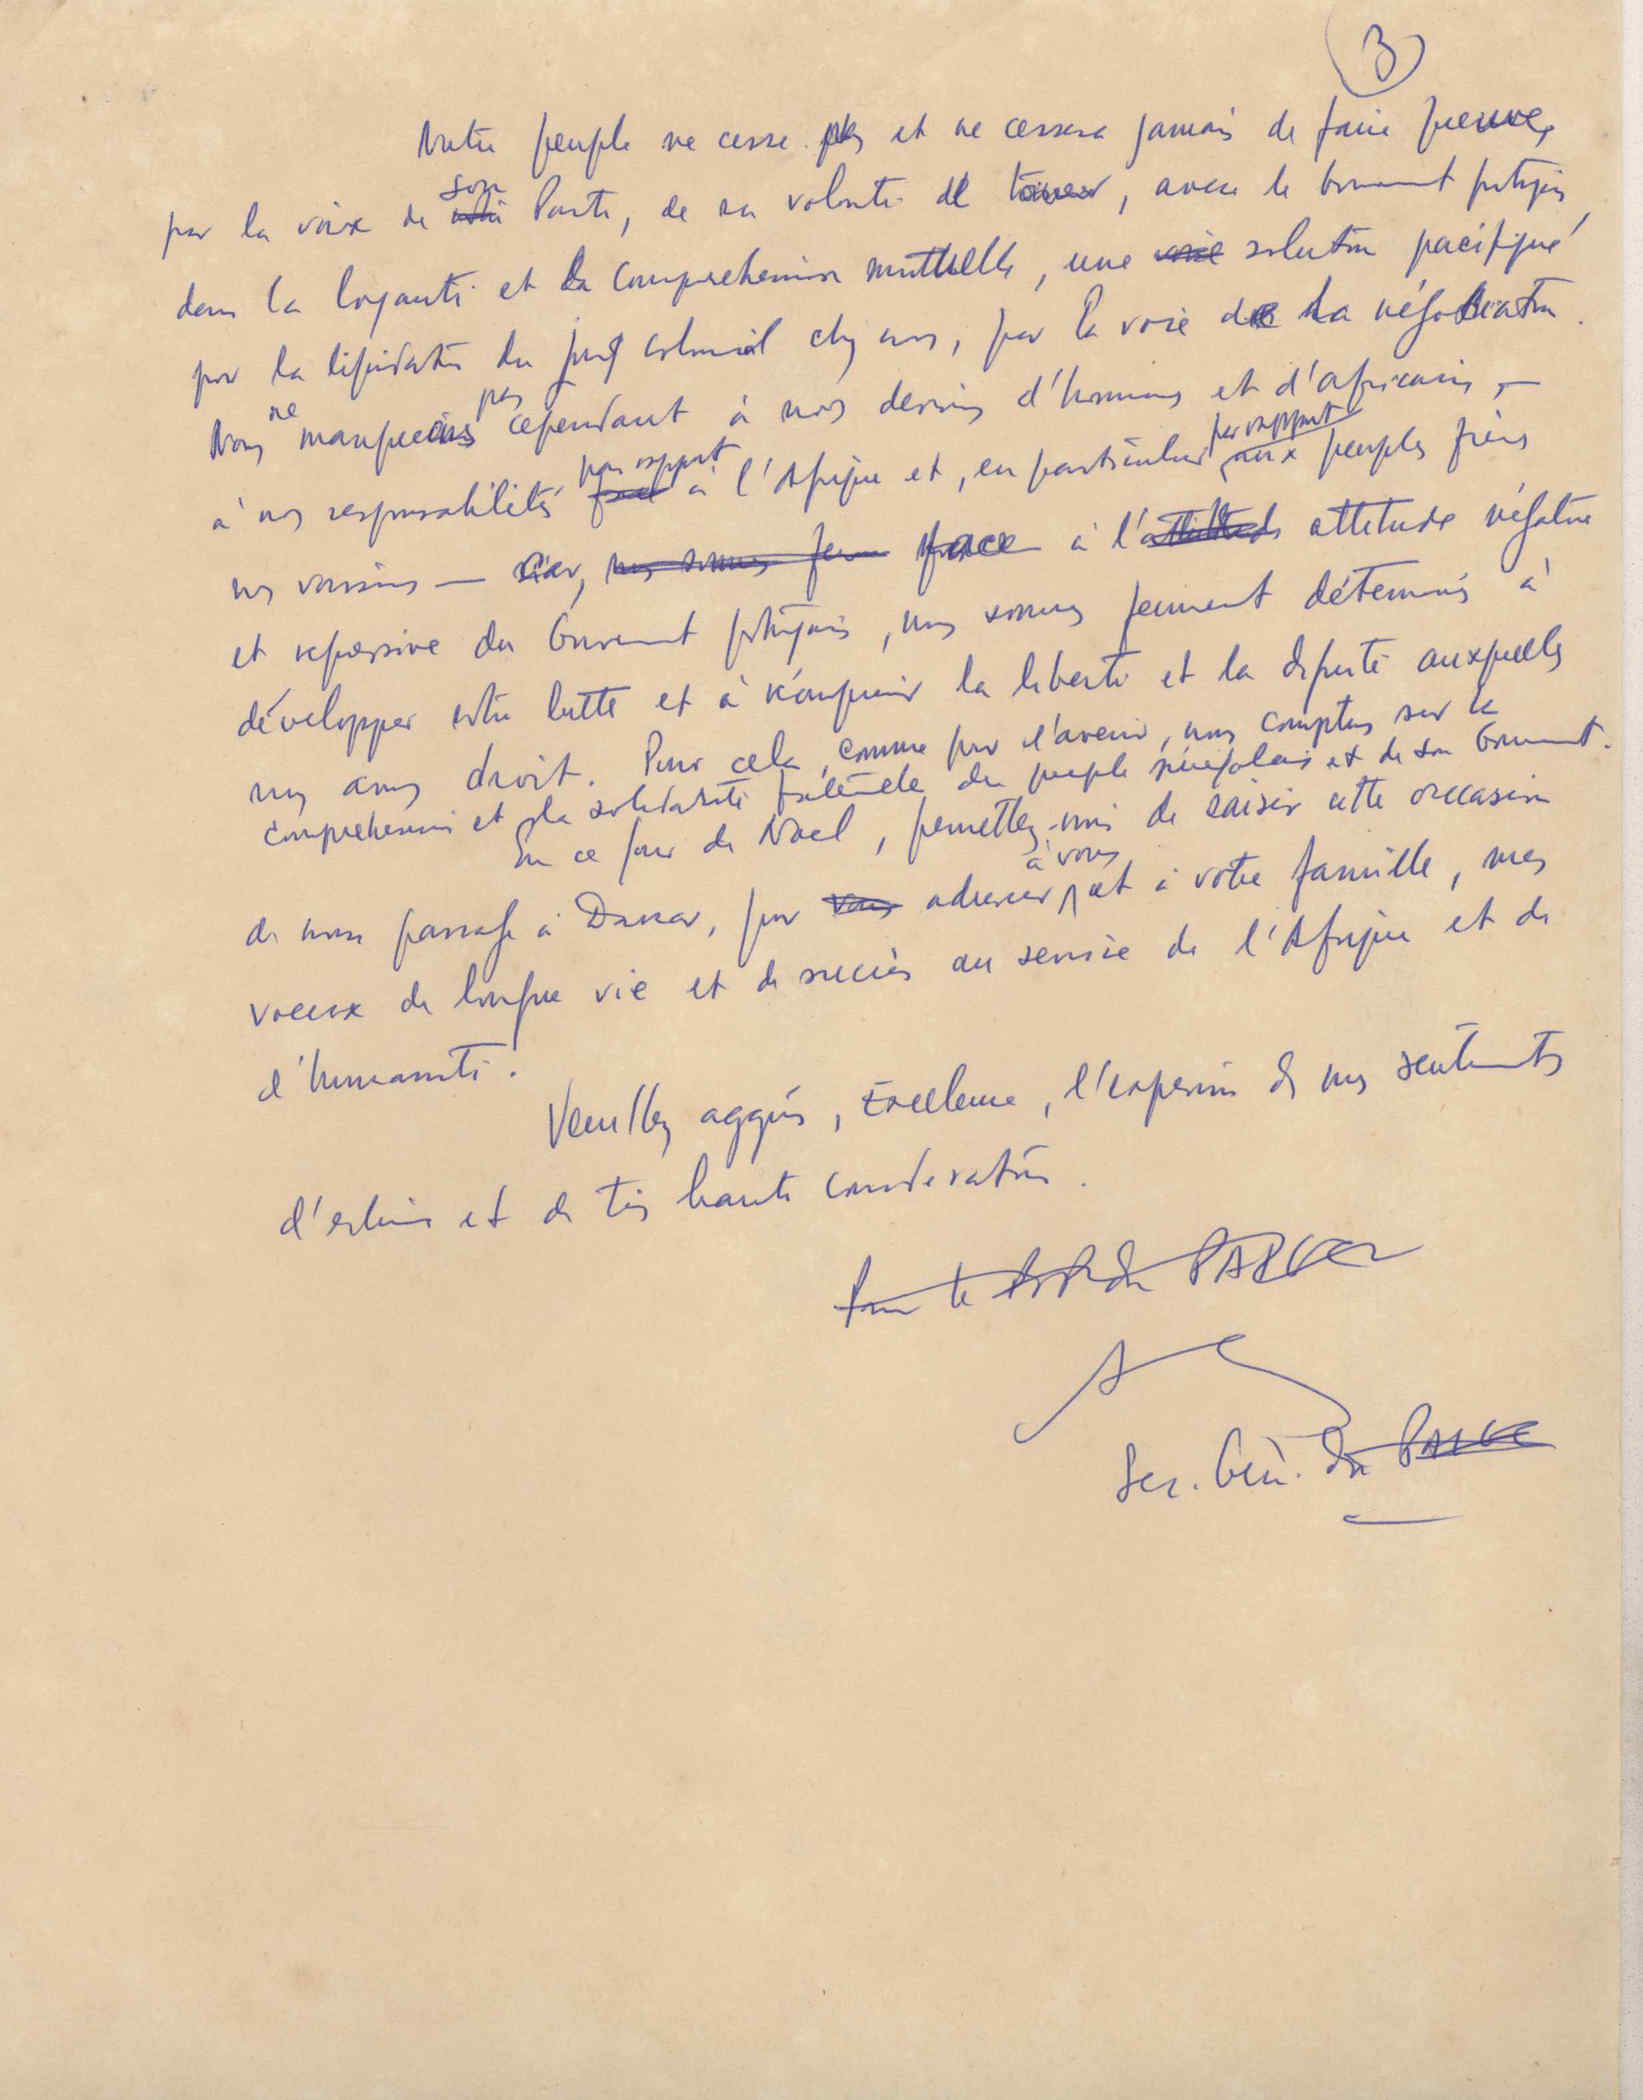 3
Notre peuple ne cesse pas et ne cessera jamais de faire preuve,
par la voix de son Parti, de sa volonté de trouver, avec le Gouvernement portugais,
dans la loyauté et la compréhension mutuelle, une voie solution pacifique
pour la liquidation du joug colonial chez nous, par la voie de la négociation.
Nous ne manquerons pas cependant à nos devoirs d'hommes et d'africains, —
à nos responsabilités par rapport à l'Afrique et, en particulier par rapport aux peuples frères
nos voisins — car, nous sommes ferm face à l'attitude attitude négative
et repressive du Gouvernement portugais, nous sommes fermement déterminés à
développer notre lutte et à conquérir la liberté et la dignité auxquelles
nous avons droit. Pour cela, comme pour l'avenir, nous comptons sur la
compréhension et la solidarité fraternelle du peuple sénégalais et de son Gouvernement.
En ce jour de Noel, permettez-moi de saisir cette occasion
de mon passage à Dakar, pour vous adresser à vous et à votre famille, mes
voeux de longue vie et de succès au service de l'Afrique et de
l'humanité.
Veuillez aggréer, Excellence, l'expression de mes sentiments
d'estime et de très haute consideration.
Pour le B.P. du PAIGC
Sec. Gén. du PAIGC